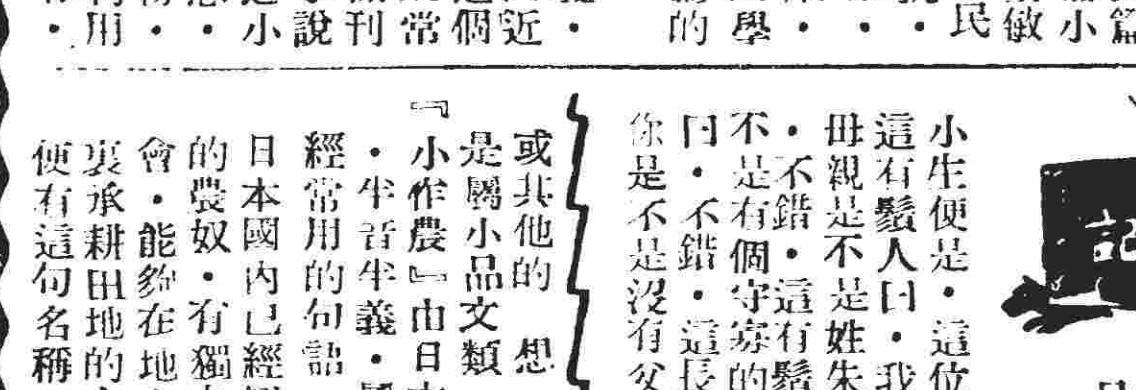 篇
小
敏
民
・
・
・
學
的
・
近
個
常
刊
說
小
・
・
用
・
記
小生便是・這位
這有鬍人曰・我
母親是不是姓朱
・不錯・這有鬍
不是有個守寡的
曰・不錯・這長
你是不是沒有父
或其他的　想
是屬小品文類
『小作農』由日
・半音半義・
經常用的句語
日本國內已經
的農奴・有獨
會・能夠在地
裏承耕田地的
便有這句名稱